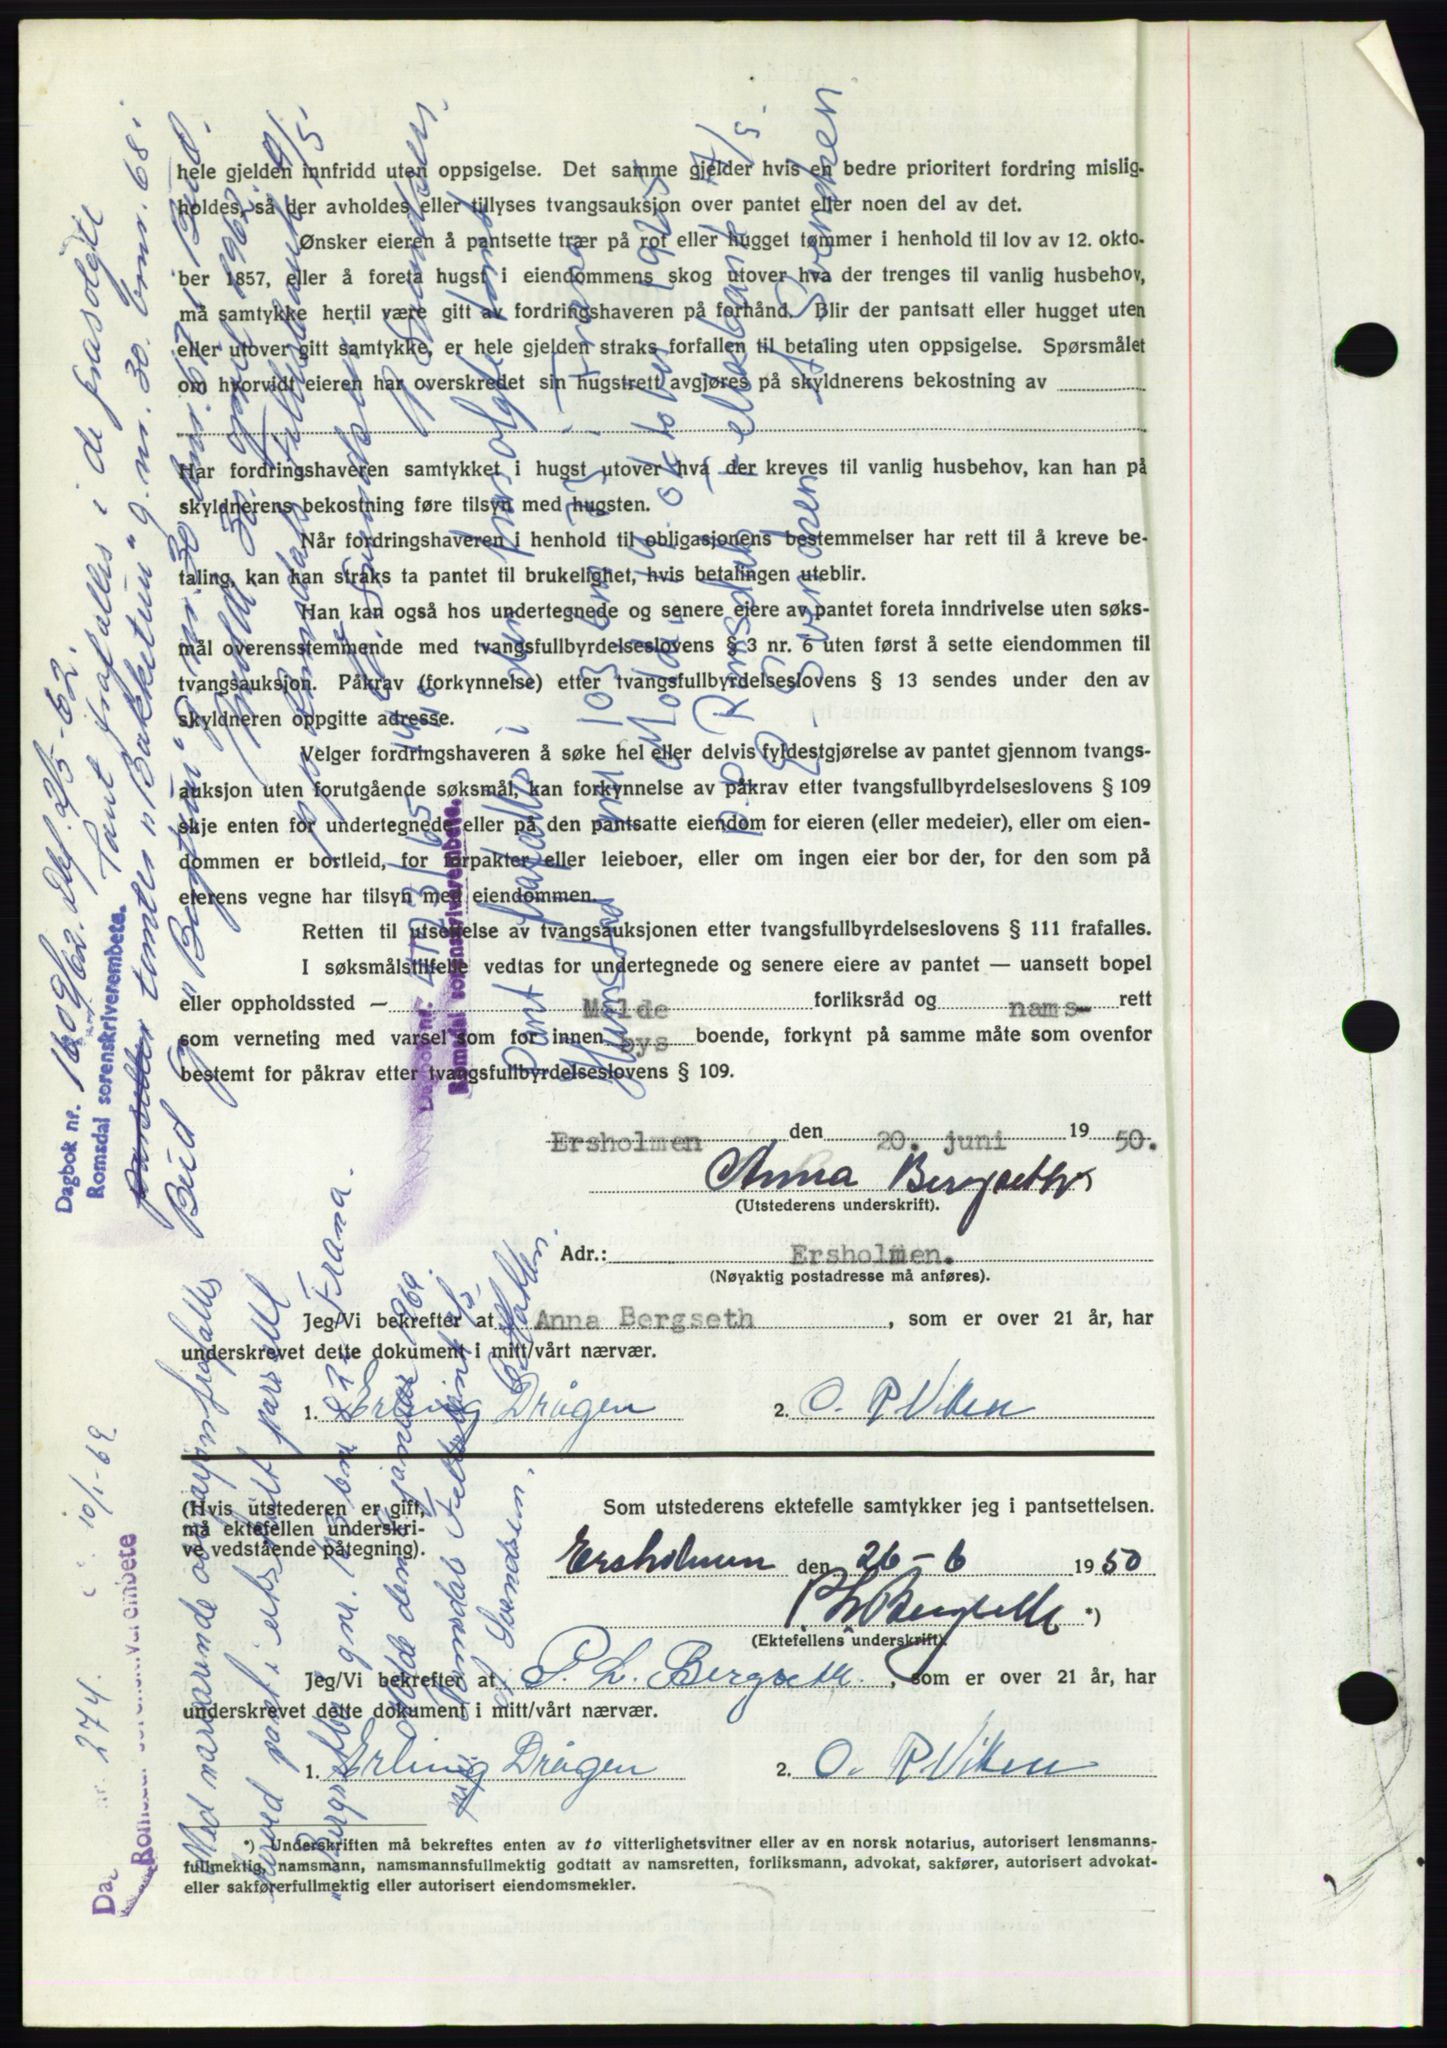 hele gjelden innfridd uten oppsigelse. Det samme gjelder hvis en bedre prioritert fordring mislig-
holdes, så der avholdes eller tillyses tvangsauksjon over pantet eller noen del av det.
Ønsker eieren å pantsette trær på rot eller hugget tømmer i henhold til lov av 12. okto-
ber 1857, eller å foreta hugst i eiendommens skog utover hva der trenges til vanlig husbehov,
må samtykke hertil være gitt av fordringshaveren på forhånd. Blir der pantsatt eller hugget uten
eller utover gitt samtykke, er hele gjelden straks forfallen til betaling uten oppsigelse. Spørsmålet
om hvorvidt eieren har overskredet sin hugstrett avgjøres på skyldnerens bekostning av
Har fordringshaveren samtykket i hugst utover hva der kreves til vanlig husbehov, kan han på
skyldnerens bekostning føre tilsyn med hugsten.
Når fordringshaveren i henhold til obligasjonens bestemmelser har rett til å kreve be-
taling, kan han straks ta pantet til brukelighet, hvis betalingen uteblir.
Han kan også hos undertegnede og senere eiere av pantet foreta inndrivelse uten søks-
mål overensstemmende med tvangsfullbyrdelseslovens § 3 nr. 6 uten først å sette eiendommen til
tvangsauksjon. Påkrav (forkynnelse) etter tvangsfullbyrdelseslovens § 13 sendes under den av
skyldneren oppgitte adresse.
Velger fordringshaveren å søke hel eller delvis fyldestgjørelse av pantet gjennom tvangs-
auksjon uten forutgående søksmål, kan forkynnelse av påkrav etter tvangsfullbyrdelseslovens § 109
skje enten for undertegnede eller på den pantsatte eiendom for eieren (eller medeier), eller om eien-
dommen er bortleid, for forpakter eller leieboer, eller om ingen eier bor der, for den som på
eierens vegne har tilsyn med eiendommen.
Retten til utsettelse av tvangsauksjonen etter tvangsfullbyrdelseslovens § 111 frafalles.
I søksmålstilfelle vedtas for undertegnede og senere eiere av pantet — uansett bopel
eller oppholdssted — Molde forliksråd og nams- rett
som verneting med varsel som for innen bys boende, forkynt på samme måte som ovenfor
bestemt for påkrav etter tvangsfullbyrdelseslovens § 109.
Ersholmen den 20. juni 19 50.
Anna Bergseth
(Utstederens underskrift).
Adr.: Ersholmen.
(Nøyaktig postadresse må anføres).
Jeg/Vi bekrefter at Anna Bergseth, som er over 21 år, har
underskrevet dette dokument i mitt/vårt nærvær.
1. Erling Drågen 2. O. P. Viken
(Hvis utstederen er gift, Som utstederens ektefelle samtykker jeg i pantsettelsen.
må ektefellen underskri-
ve vedstående påtegning).
Ersholmen den 26-6 1950
P L Bergseth *)
(Ektefellens underskrift).
Jeg/Vi bekrefter at P. L. Bergseth, som er over 21 år, har
underskrevet dette dokument i mitt/vårt nærvær.
1. Erling Drågen 2. O. P. Viken
*) Underskriften må bekreftes enten av to vitterlighetsvitner eller av en norsk notarius, autorisert lensmanns-
fullmektig, namsmann, namsmannsfullmektig godtatt av namsretten, forliksmann, advokat, sakfører, autorisert advokat-
eller sakførerfullmektig eller autorisert eiendomsmekler.
Dagbok nr. 1609/62
Romsdal sorenskriverembete.
Pant frafalles i de frasolgte
tomter "Bakketun" g.nr. 30. bnr. 68 i
Bud
Molde 30 april 1962
Dagbok nr. 4723/65
Romsdal sorenskriverembete.
Pant frafalles i den frasolgte tomt
gnr 103 bnr 23 i Fræna
Molde, 19. oktober 1965
p.p. Romsdals Fellesbank A/S
274. 10/1-69
Romsdal sorenskriverembete
Med nærværende obligasjon frafalles
herved pant i utskilt parsell
gnr. 103 bnr 22 i Fræna.
Molde den januar 1969
Romsdals Fellesbank A/S